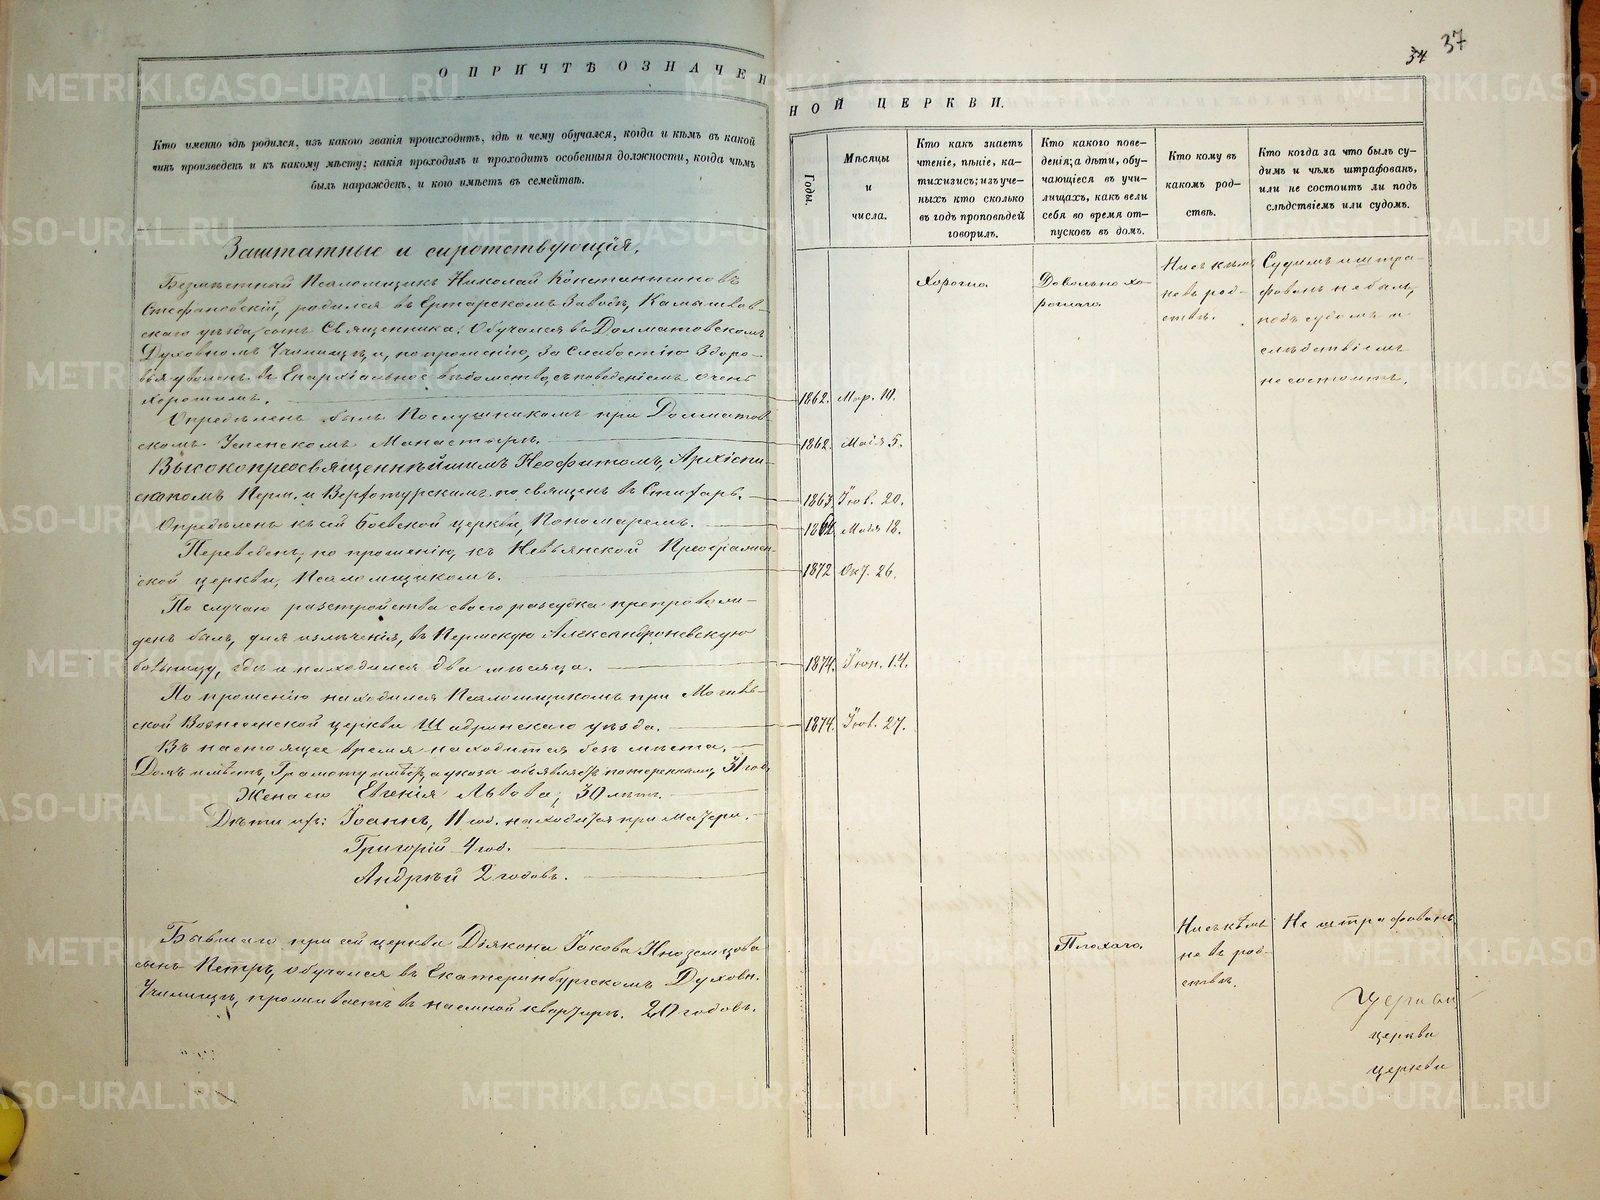 34 37
О ПРИЧТѢ ОЗНАЧЕН
НОЙ ЦЕРКВИ.
Кто именно гдѣ родился, изъ какого званія происходитъ, гдѣ и чему обучался, когда и кѣмъ въ какой
чинъ произведенъ и къ какому мѣсту; какія проходилъ и проходитъ особенныя должности, когда чѣмъ
былъ награжденъ, и кого имѣетъ въ семействѣ.
Годы.
Мѣсяцы
и
числа.
Кто какъ знаетъ
чтеніе, пѣніе, ка-
тихизисъ; изъ уче-
ныхъ кто сколько
въ годъ проповѣдей
говорилъ.
Кто какого пове-
денія; а дѣти, обу-
чающіеся въ учи-
лищахъ, какъ вели
себя во время от-
пусковъ въ домъ.
Кто кому въ
какомъ род-
ствѣ.
Кто когда за что былъ су-
димъ и чѣмъ штрафованъ,
или не состоитъ ли подъ
слѣдствіемъ или судомъ.
Заштатные и сиротствующія.
Безмѣстный Псаломщикъ Николай Константиновъ
Стефановскій, родился въ Ертарскомъ Заводѣ, Камышлов-
скаго уѣзда, сынъ Священника; Обучался въ Долматовскомъ
Духовномъ Училищѣ, и, по прошенію, за слабостію здоро-
вья уволенъ въ Епархіальное вѣдомство, съ поведеніемъ очень
хорошимъ. 1862. Мар. 10.
Хорошо.
Довольно хо-
рошаго.
Ни съ кѣмъ
не въ род-
ствѣ.
Судимъ и штра-
фованъ не былъ,
подъ судомъ и
слѣдствіемъ
не состоитъ.
Опредѣленъ былъ Послушникомъ при Долматов
скомъ Успенскомъ Монастырѣ. 1862. Маія 5.
Высокопреосвященнѣйшимъ Неофитомъ, Архіепи-
скопомъ Перм. и Верхотурскимъ посвященъ въ Стихарь. Іюл. 20.
Опредѣленъ къ сей Боевской церкви, Пономаремъ. Маія 18.
Переведенъ, по прошенію, къ Невьянской Преображен-
ской церкви, Псаломщикомъ. 1872 Окт. 26.
По случаю разстройства своего разсудка препровож-
денъ былъ, для излѣченія, въ Пермскую Александроневскую
больницу, гдѣ и находился два мѣсяца. 1874. Іюн. 14.
По прошенію находился Псаломщикомъ при
ской Вознесенской церкви Шадринскаго уѣзда. 1874. Іюл. 27.
Въ настоящее время находится безъ мѣста.
Домъ имѣетъ, Грамоту имѣетъ, а указа объявляетъ потереннымъ, 31 год.
Жена его Евгенія Львова, 30 лѣтъ.
Дѣти ихъ: Іоаннъ, 11 год. находится при матери.
Григорій 4 год.
Андрей 2 годовъ.
Бывшаго при сей церкви Діякона Іакова Иноземцова
сынъ Петръ, обучался въ Екатеринбургскомъ Духовн.
Училищѣ, проживаетъ въ наемной квартирѣ. 20 годовъ.
Плохаго.
Ни съ кѣмъ
не въ род-
ствѣ.
Не штрафованъ
Церкви
церкви
церкви
METRIKI.GASO-URAL.RU